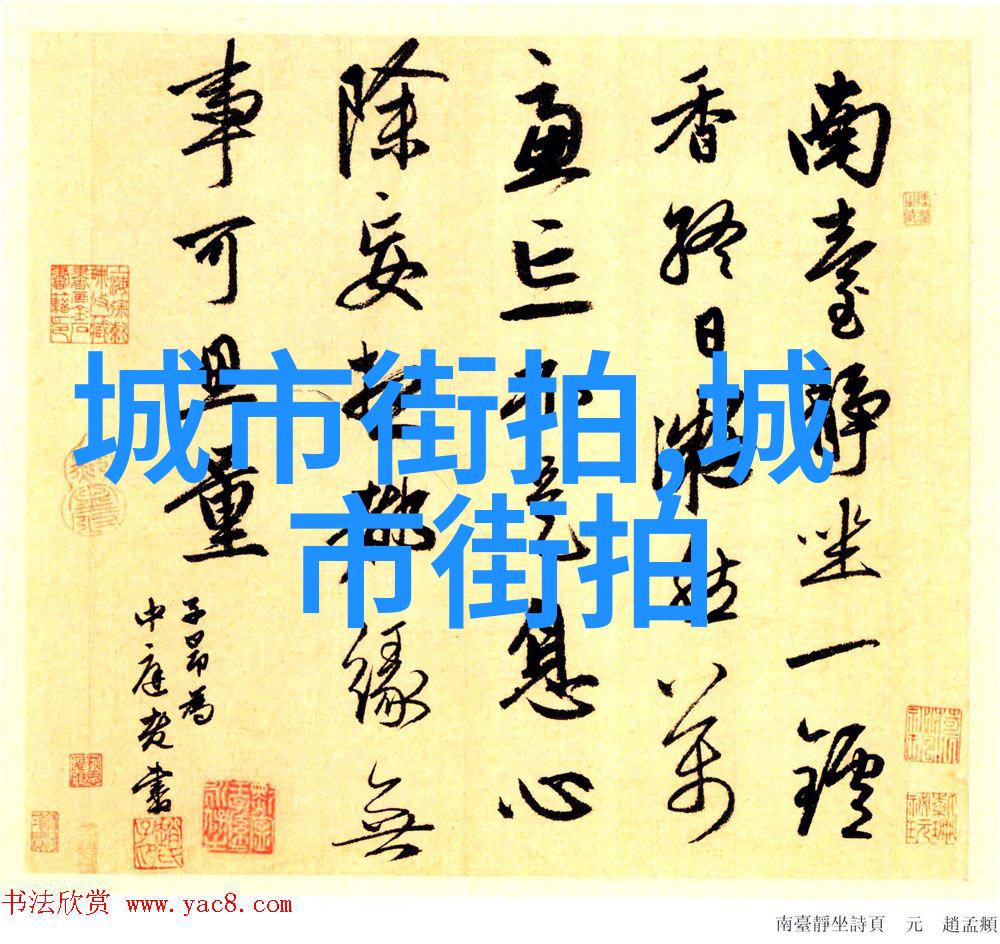 南臺靜坐一鑪
香終日凝然萬
慮亡不是息心
除妄想都緣無
事可思量
子昂為
中庭老書
城市街拍,城
市街拍
书法欣赏 www.yac8.com
南臺靜坐詩頁 元 趙孟頫